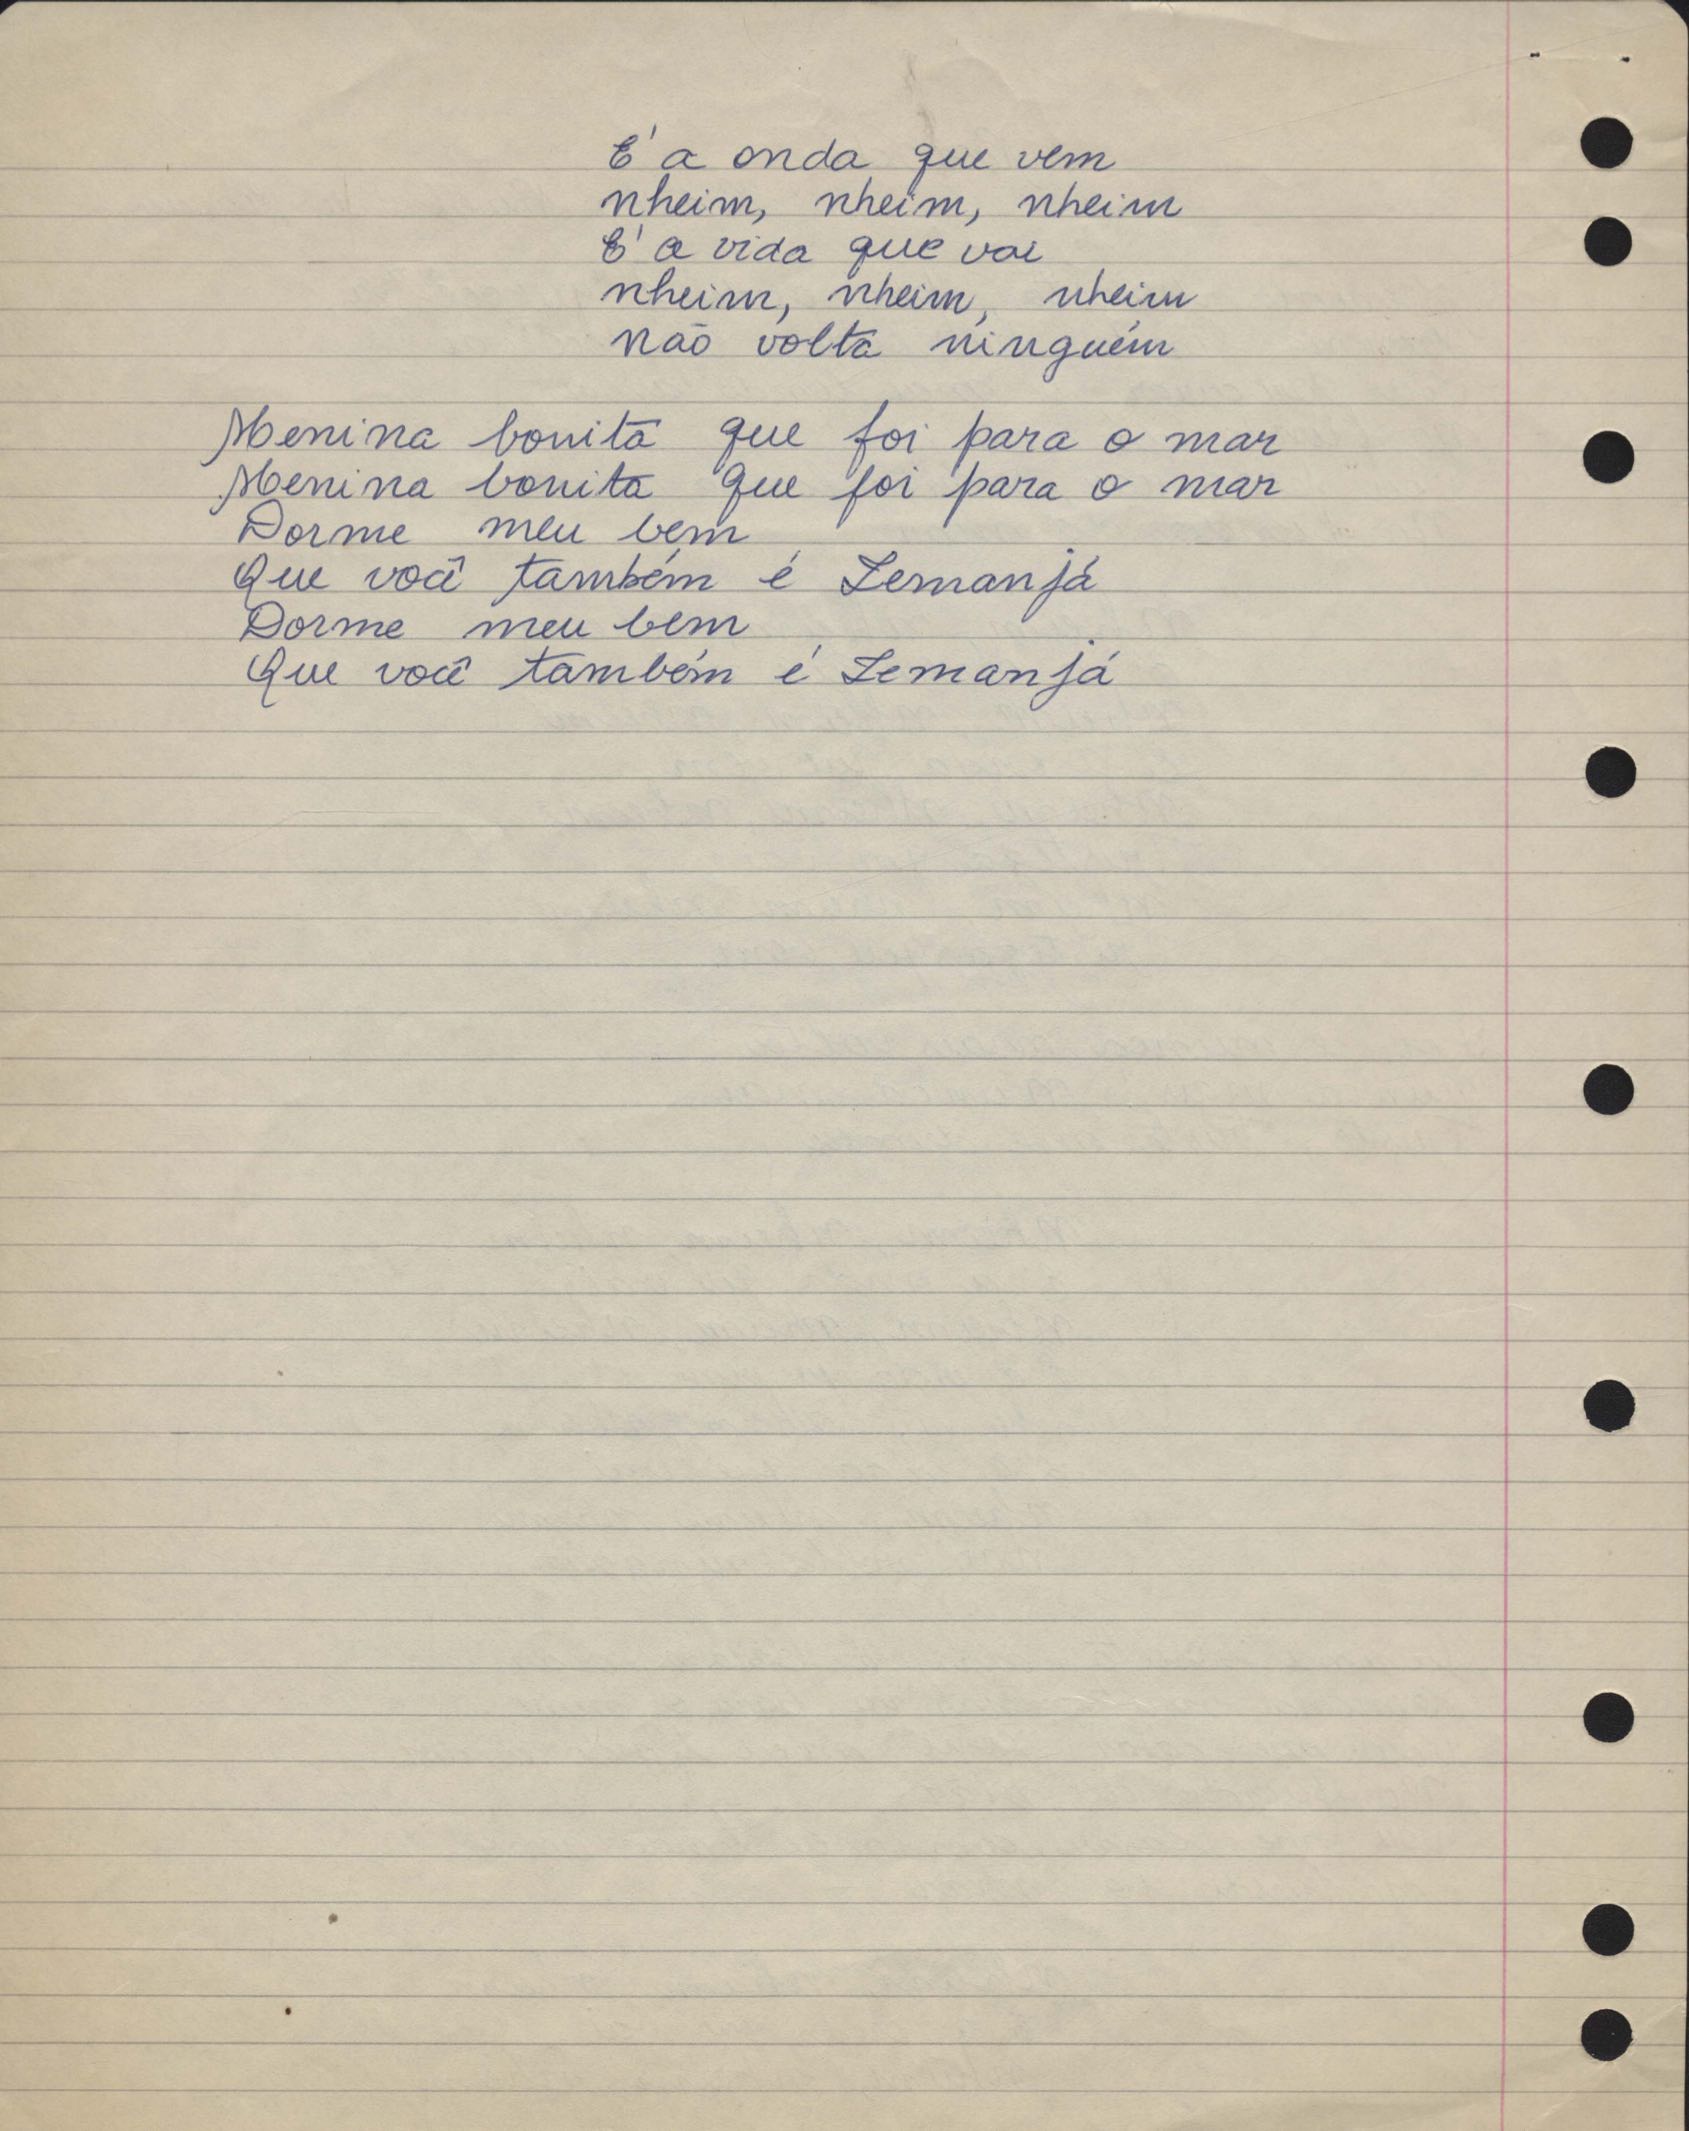 É a onda que vem
nheim, nheim, nheim
É a vida que vai
nheim, nheim, nheim
não volta ninguém
Menina bonita que foi para o mar
Menina bonita que foi para o mar
Dorme meu bem
Que você também é Iemanjá
Dorme meu bem
Que você também é Iemanjá